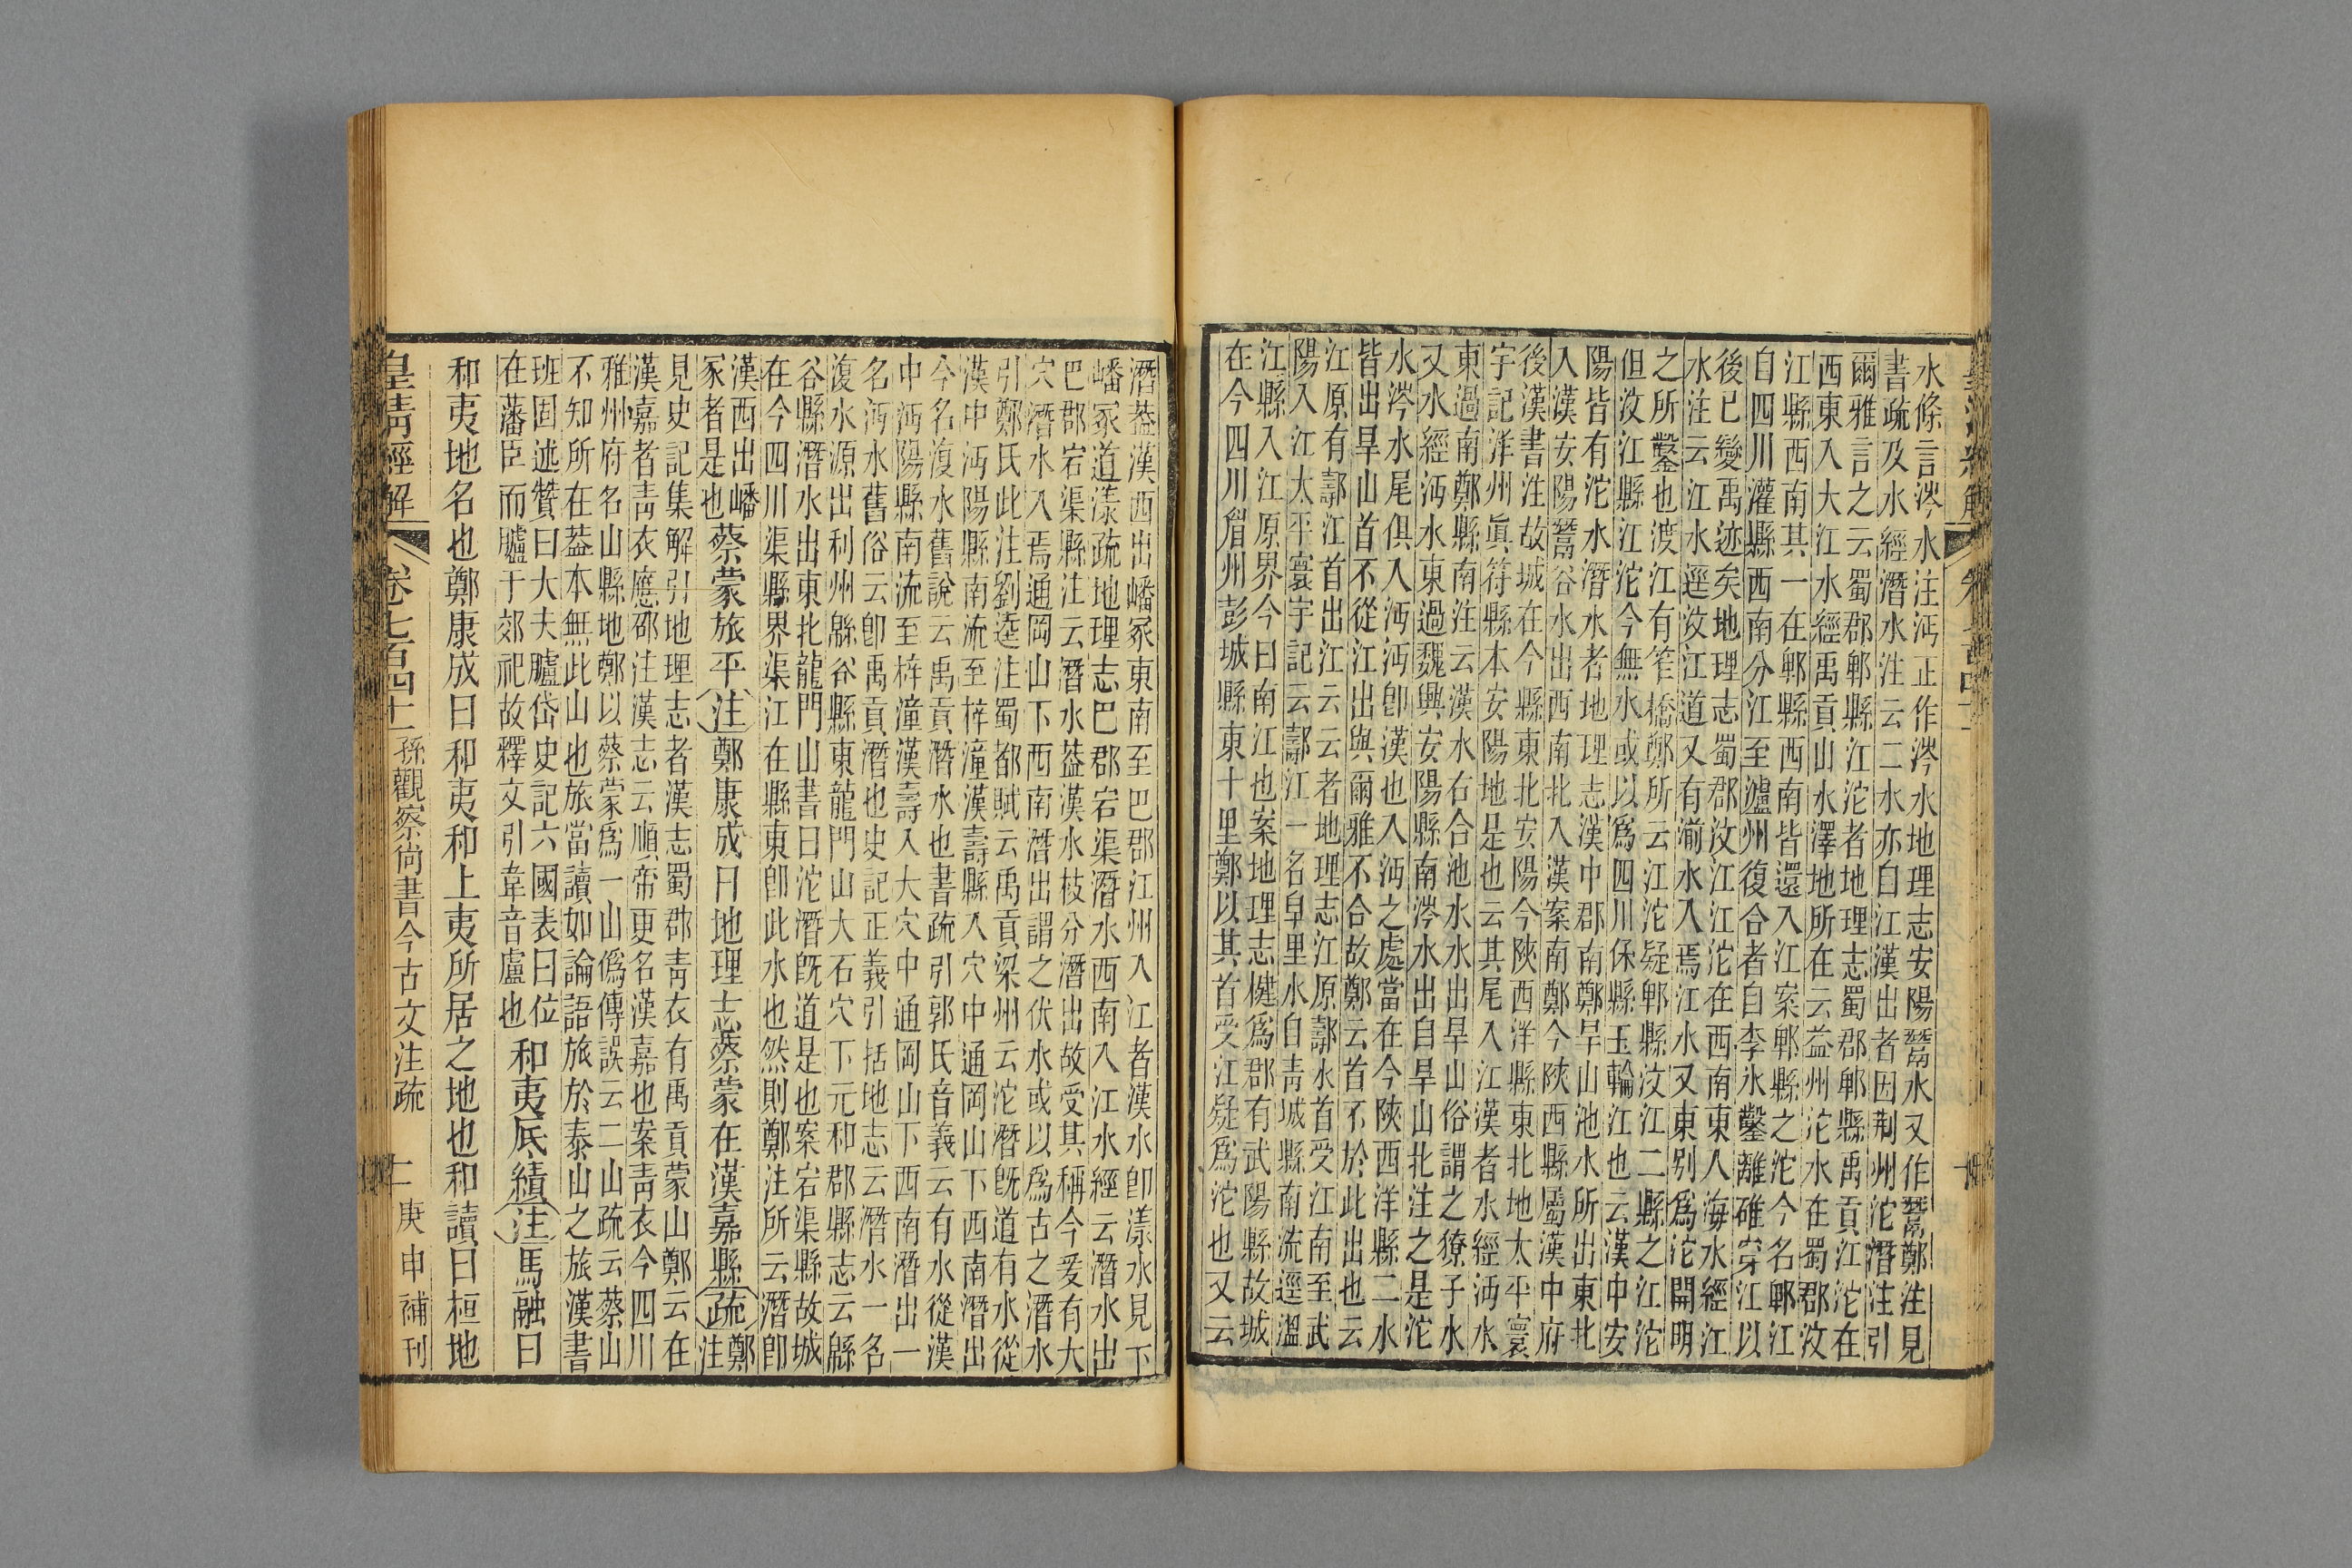 水條言涔水注沔正作涔水地理志安陽鬵水又作鬵鄭注見
書疏及水經潛水注云二水亦自江漢出者因荆州沱潛注引
爾雅言之云蜀郡郫縣江沱者地理志蜀郡郫縣禹貢江沱在
西東入大江水經禹貢山水澤地所在云益州沱水在蜀郡汶
江縣西南其一在郫縣西南皆還入江案郫縣之沱今名郫江
自四川灌縣西南分江至瀘州復合者自李氷鑿離碓穿江以
後已變禹迹矣地理志蜀郡汶江江沱在西南東入海水經江
水注云江水逕汶江道又有湔水入焉江水又東别爲沱開明
之所鑿也渡江有笮橋鄭所云江沱疑郫縣汶江二縣之江沱
但汶江縣江沱今無水或以爲四川保縣玉輪江也云漢中安
陽皆有沱水潛水者地理志漢中郡南鄭旱山池水所出東北
入漢安陽鬵谷水出西南北入漢案南鄭今陝西縣屬漢中府
後漢書注故城在今縣東北安陽今陝西洋縣東北地太平寰
宇記洋州眞符縣本安陽地是也云其尾入江漢者水經沔水
東過南鄭縣南注云漢水右合池水水出旱山俗謂之獠子水
又水經沔水東過魏興安陽縣南涔水出自旱山北注之是沱
水涔水尾俱入沔沔卽漢也入沔之處當在今陝西洋縣二水
皆出旱山首不從江出與爾雅不合故鄭云首不於此出也云
江原有䣢江首出江云云者地理志江原䣢水首受江南至武
陽入江太平寰宇記云䣢江一名皁里水自靑城縣南流逕溫
江縣入江原界今曰南江也案地理志犍爲郡有武陽縣故城
在今四川眉州彭城縣東十里鄭以其首受江疑爲沱也又云
潛葢漢西出嶓冢東南至巴郡江州入江者漢水卽漾水見下
嶓冢道漾疏地理志巴郡宕渠潛水西南入江水經云潛水出
巴郡宕渠縣注云潛水葢漢水枝分潛出故受其稱今爰有大
穴潛水入焉通岡山下西南潛出謂之伏水或以爲古之潛水
引鄭氏此注劉逵注蜀都賦云禹貢梁州云沱潛旣道有水從
漢中沔陽縣南流至梓潼漢壽縣入穴中通岡山下西南潛出
今名澓水舊說云禹貢潛水也書疏引郭氏音義云有水從漢
中沔陽縣南流至梓潼漢壽入大穴中通岡山下西南潛出一
名沔水舊俗云卽禹貢潛也史記正義引括地志云潛水一名
復水源出利州緜谷縣東龍門山大石穴下元和郡縣志云緜
谷縣潛水出東北龍門山書曰沱潛旣道是也案宕渠縣故城
在今四川渠縣界渠江在縣東卽此水也然則鄭注所云潛卽
漢西出嶓
冢者是也
蔡蒙旅平注鄭康成曰地理志蔡蒙在漢嘉縣疏
鄭
注
見史記集解引地理志者漢志蜀郡靑衣有禹貢蒙山鄭云在
漢嘉者靑衣應邵注漢志云順帝更名漢嘉也案靑衣今四川
雅州府名山縣地鄭以蔡蒙爲一山僞傳誤云二山疏云蔡山
不知所在葢本無此山也旅當讀如論語旅於泰山之旅漢書
班固述贊曰大夫臚岱史記六國表曰位
在藩臣而臚于郊祀故釋文引韋音盧也
和夷底績注馬融曰
和夷地名也鄭康成曰和夷和上夷所居之地也和讀曰桓地
皇淸經解 卷七百四十一 孫觀察尚書今古文注疏 二 庚申補刊